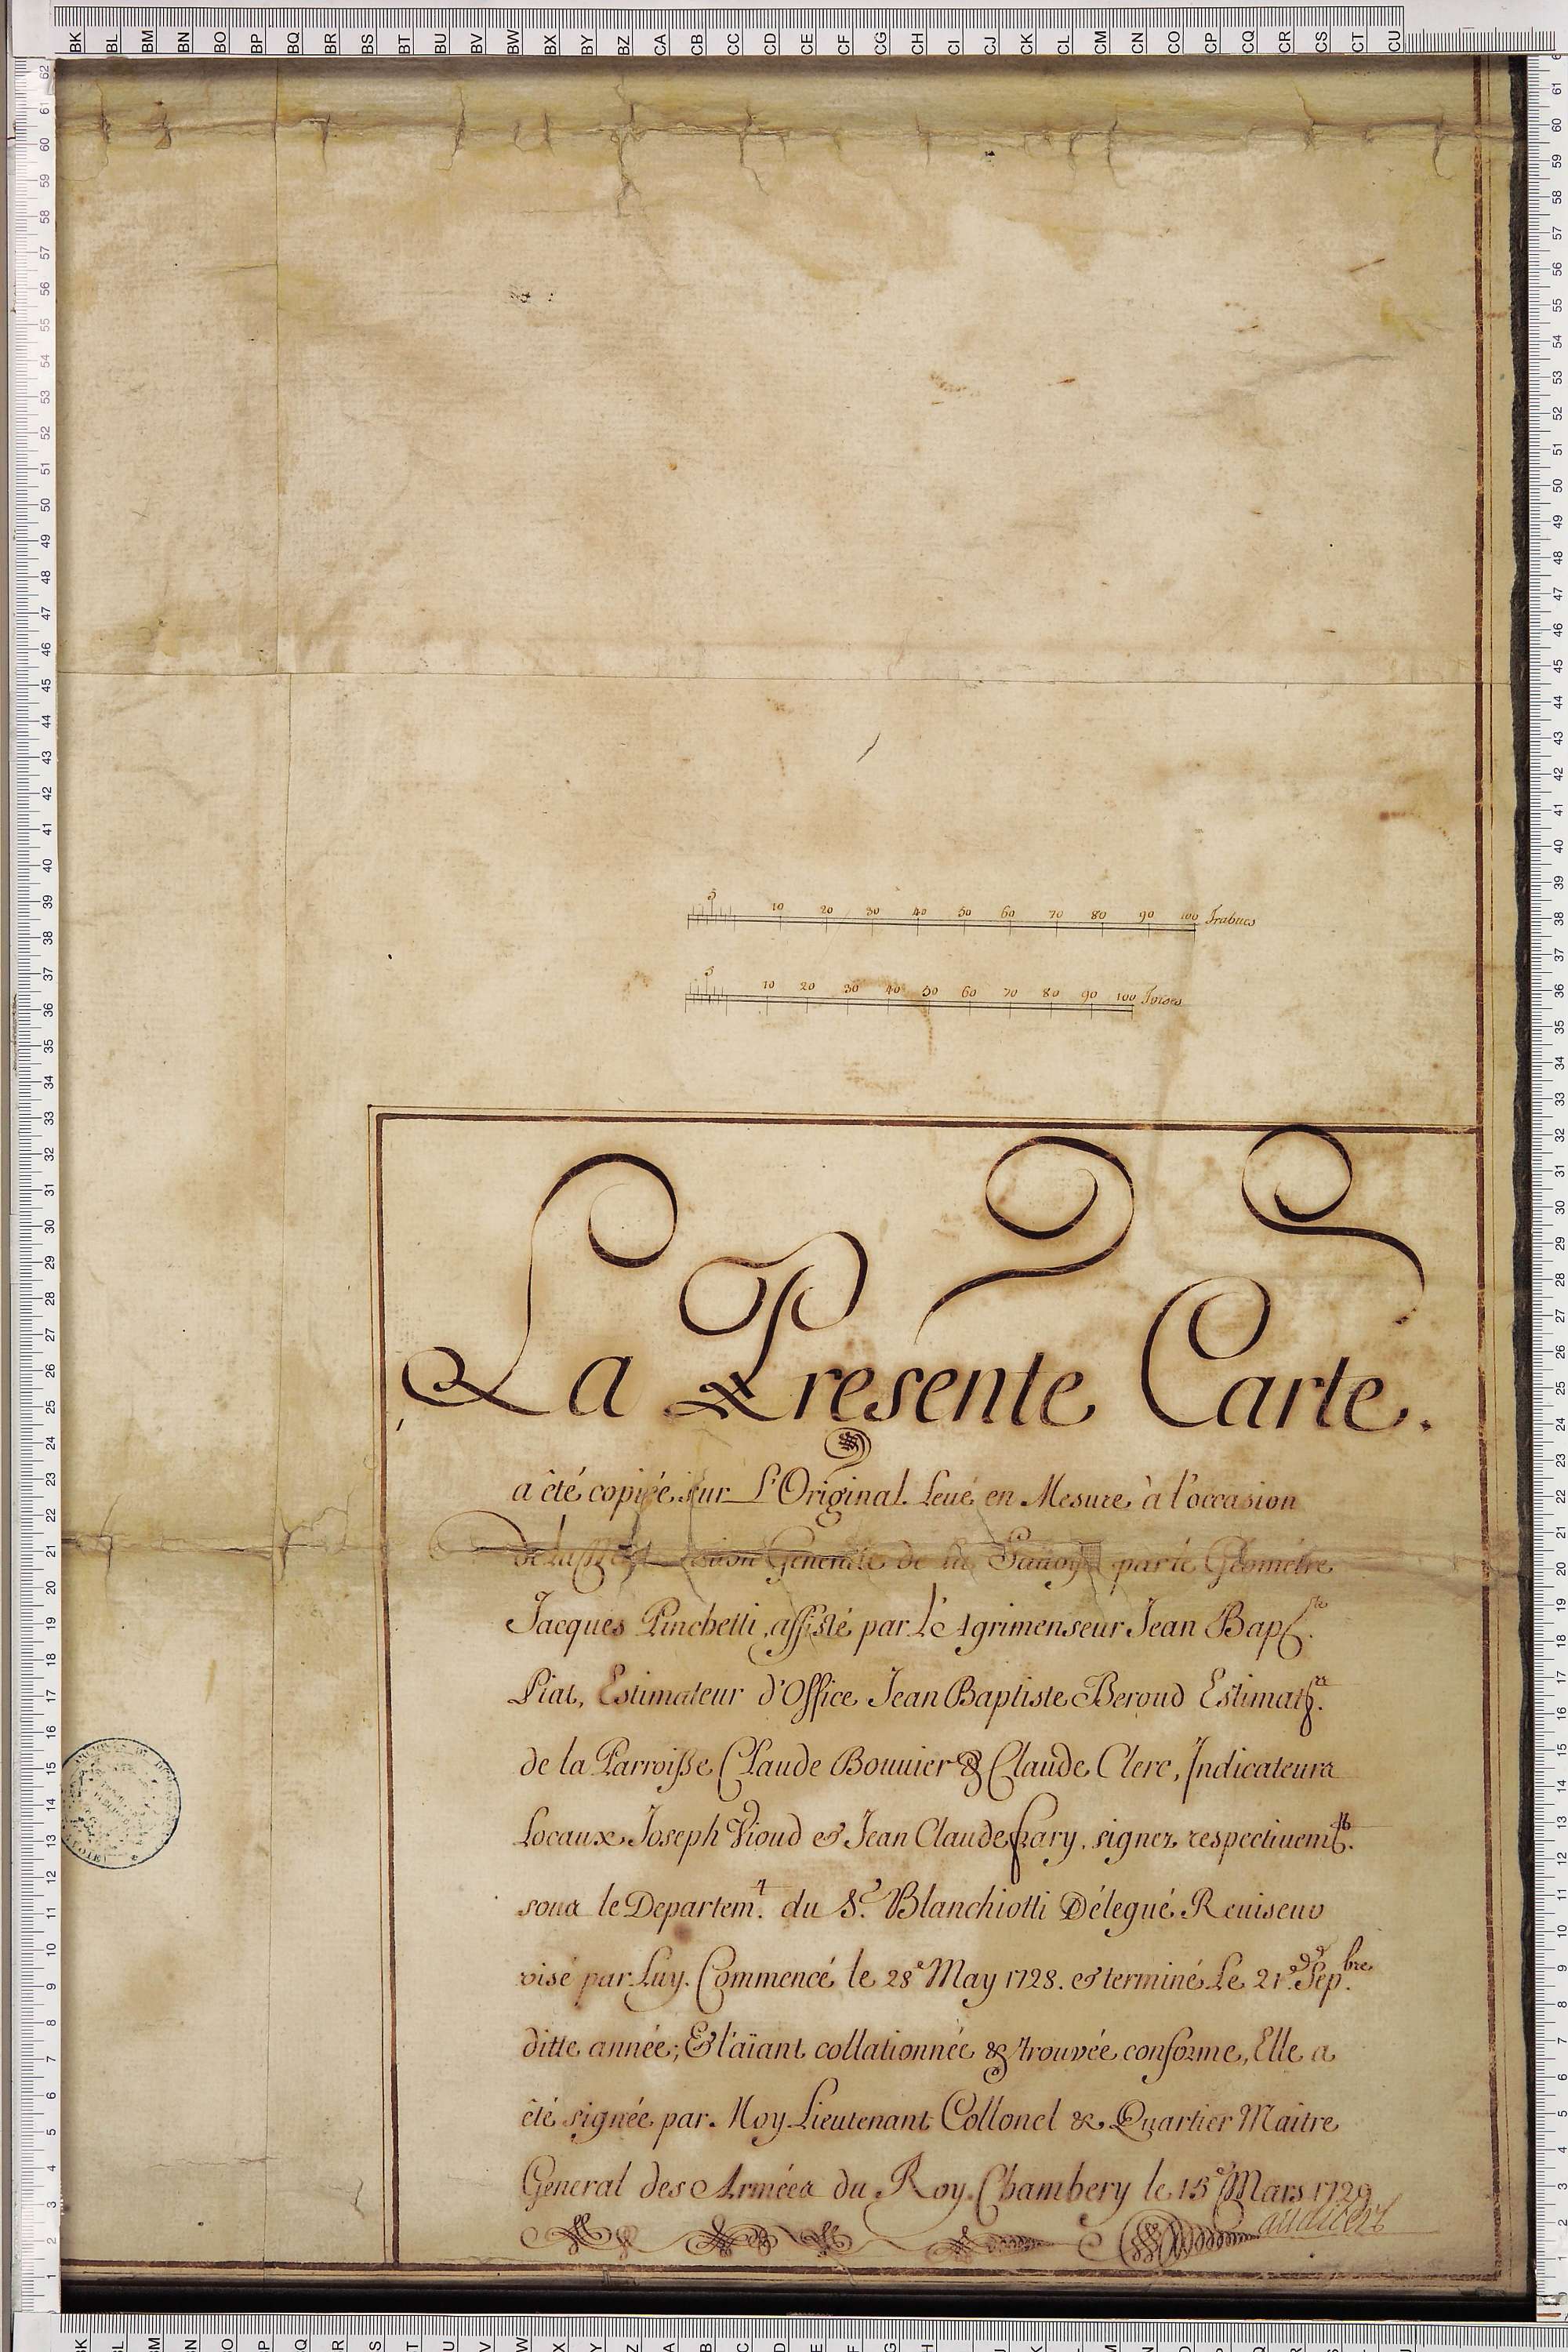 5 10 20 30 40 50 60 70 80 90 100 Trabucs
5 10 20 30 40 50 60 70 80 90 100 Toises
La Presente Carte.
a êté copiée sur L'Original Leué en Mesure à l'occasion
Generale de la Sauoye par le Géométre
Jacques Pinchetti, assisté par L'Agrimenseur Jean Bap.te
Piat, Estimateur d'Office Jean Baptiste Beroud Estimat.r
de la Parroisse Claude Bouuier & Claude Clerc, Indicateurs
Locaux Joseph Vioud & Jean Claude signez respectiuem.t
sous le Departem.t du S.r Blanchiotti Délegué Reuiseur
visé par Luy. Commencé le 28e May 1728. & terminé Le 21e Sep.bre
ditte année; & l'aïant collationnée & trouvée conforme, Elle a
êté signée par Moy Lieutenant Collonel & Quartier Maitre
General des Armées du Roy. Chambery le 15e Mars 1729